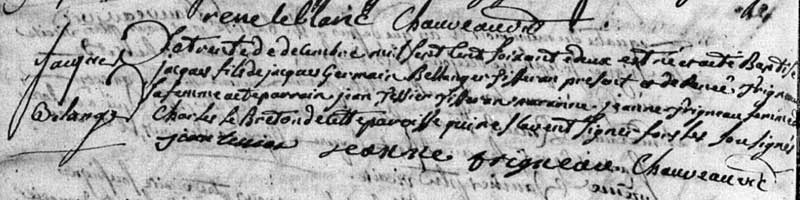 rene leblanc Chauveau vic
Jacques Le trente de decembre mil sept cent soixante deux est né et a été Baptisé
Jacques fils de Jacques Germain Bellanger Tisseran present et de Renee frigneau
sa femme a eté parrain jean Tessier Tisseran maraine jeanne frigneau femme de
Charles le Breton de cette paroisse qui ne sçavent signer fors les sousignés
jean tessier jeanne frigneau Chauveau vic